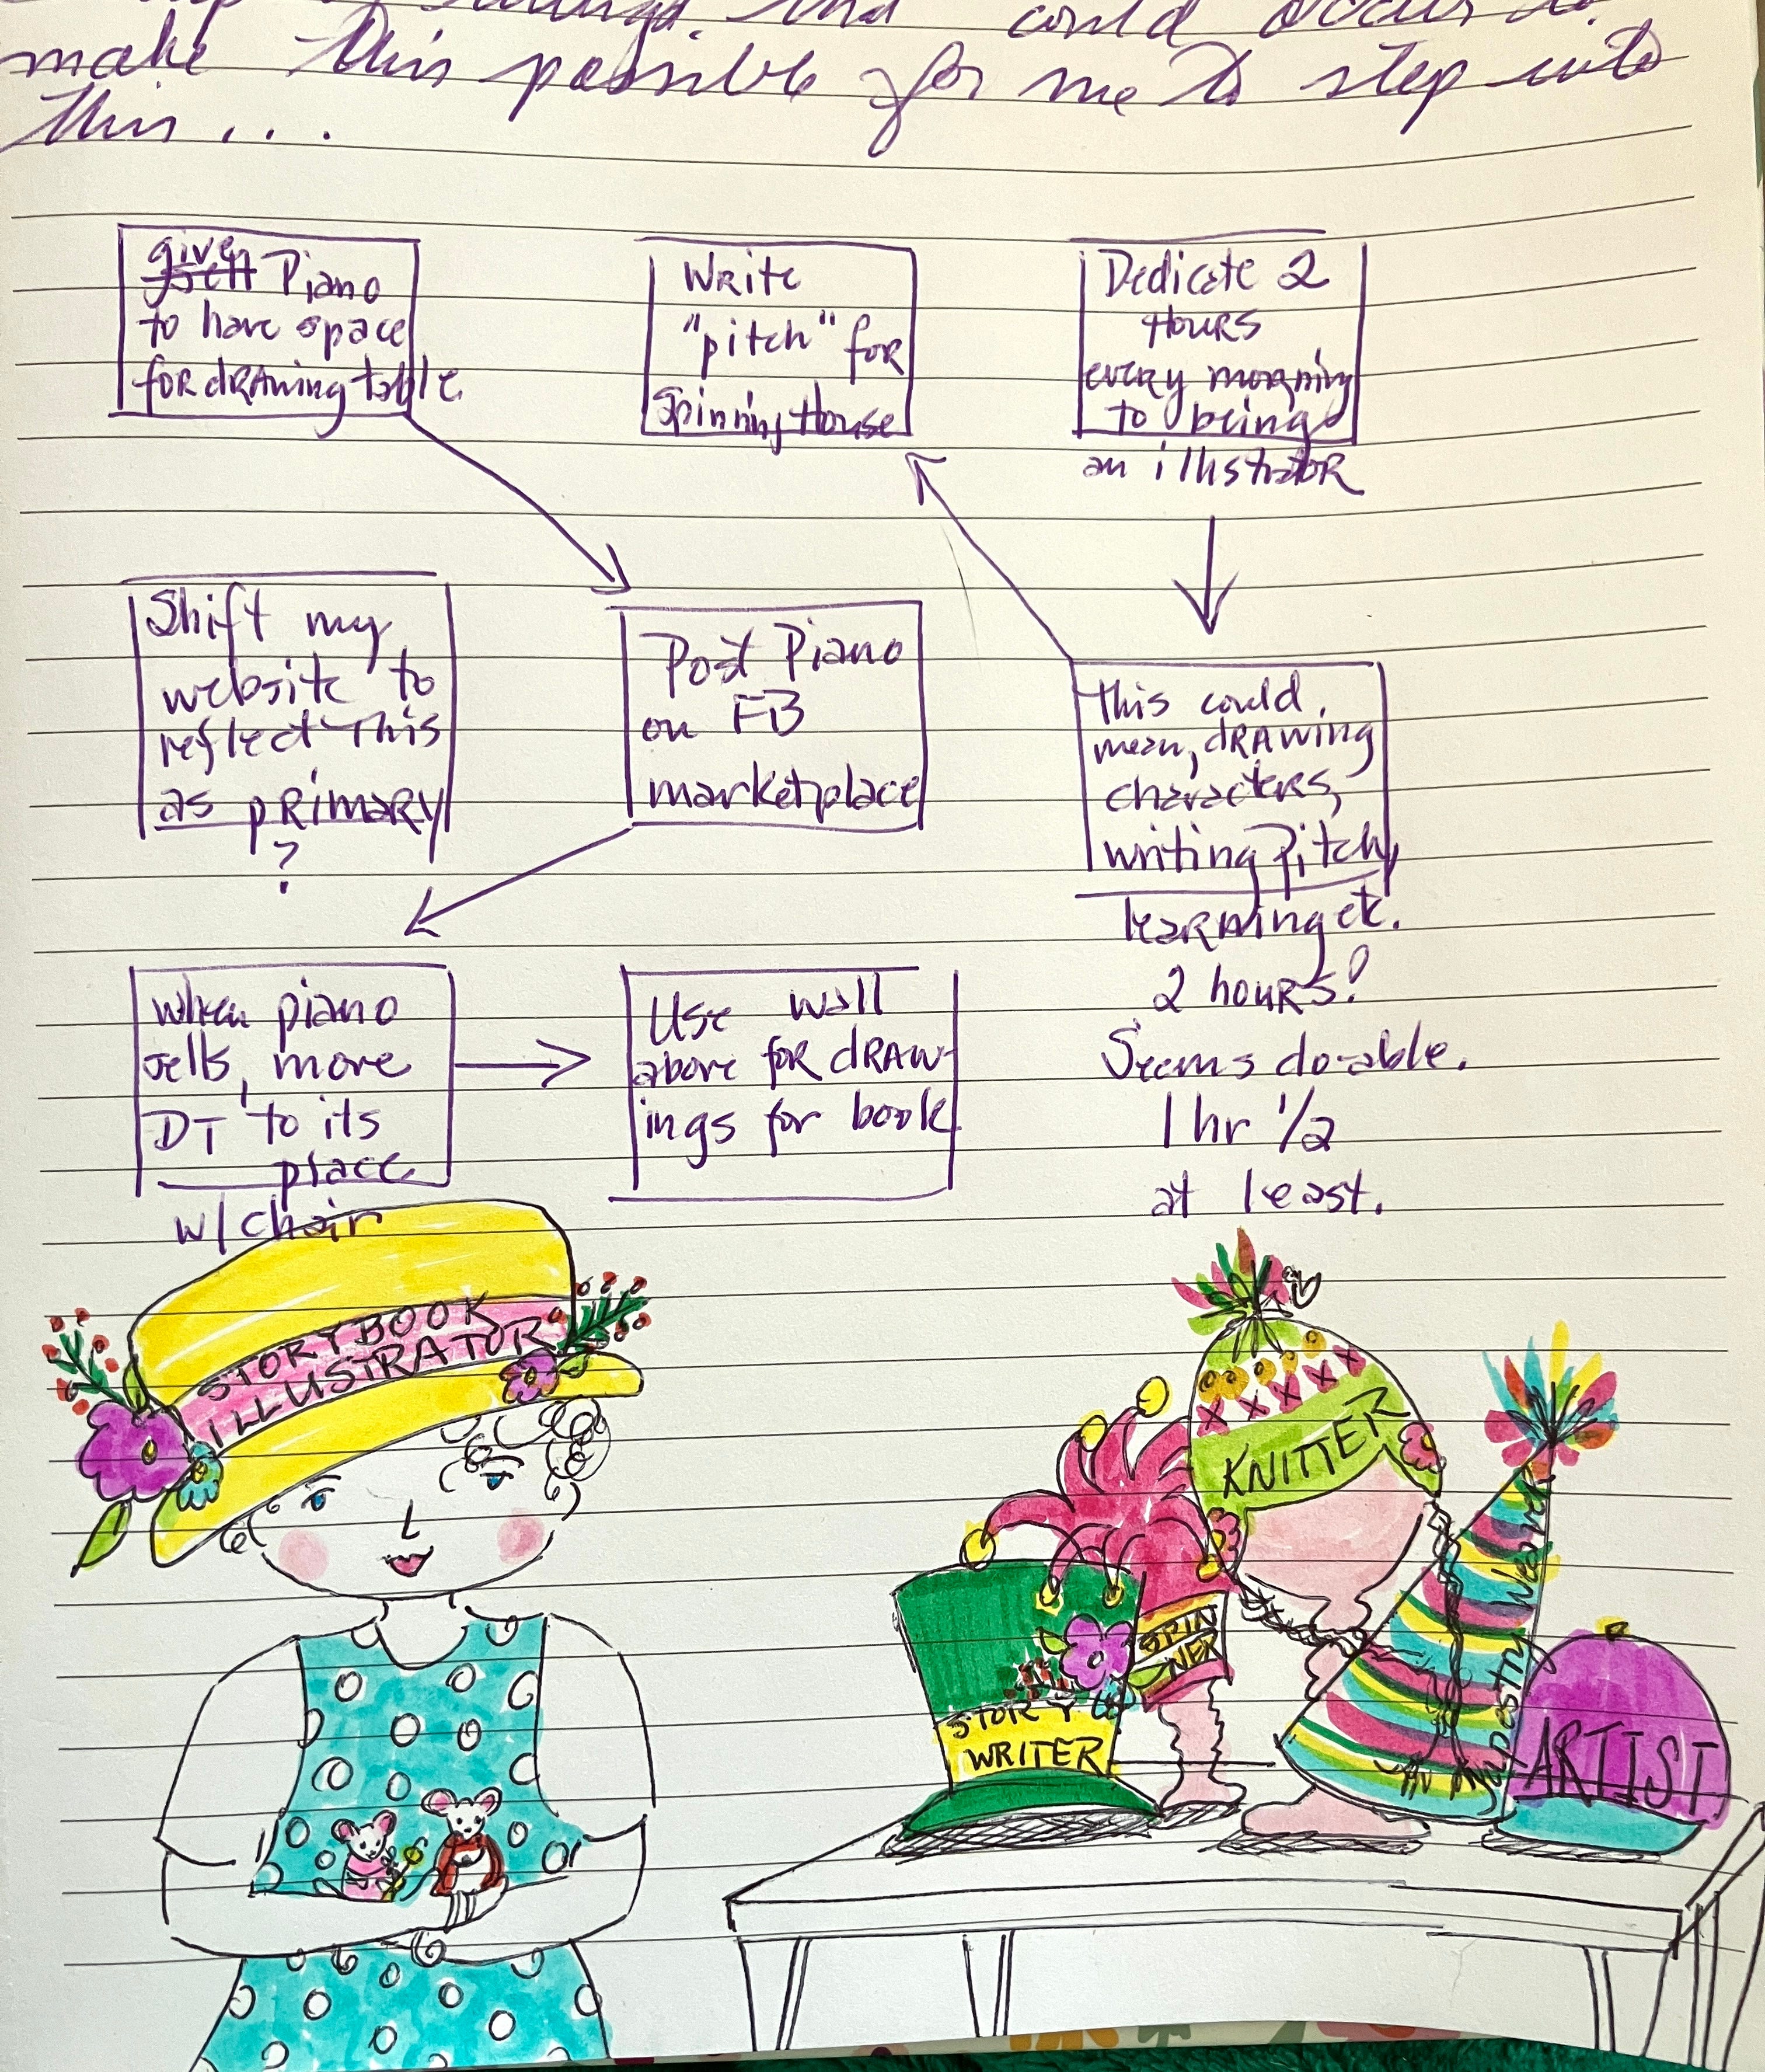 could
make this possible for me to step into
this...
give
Piano
to have space
for drawing table.
Write
"pitch" for
Spinning House
Dedicate 2
Hours
every morning
to being
an illustrator
Shift my
website to
reflect this
as primary
?
Post Piano
on FB
marketplace
This could
mean, drawing
characters,
writing Pitch,
learning etc.
2 hours!
Seems do-able.
1 hr 1/2
at least.
When piano
sells, move
DT to its
place
w/chair
Use wall
above for draw-
ings for book
STORYBOOK
ILLUSTRATOR
KNITTER
SPIN
NER
STORY
WRITER
Tapestry Weaver
ARTIST